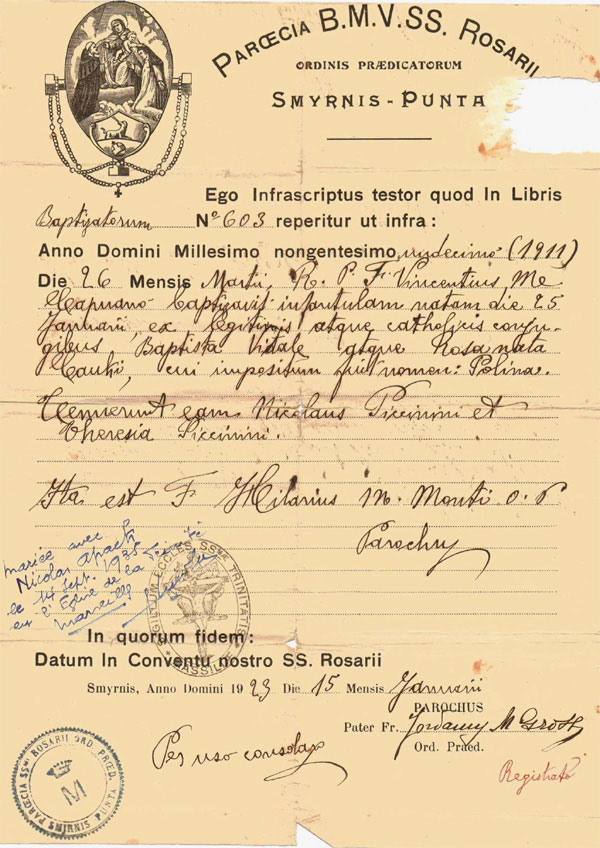 PARŒCIA B.M.V. SS. ROSARII
ORDINIS PRÆDICATORUM
SMYRNIS - PUNTA
Ego Infrascriptus testor quod In Libris
Baptizatorum No 603 reperitur ut infra :
Anno Domini Millesimo nongentesimo undecimo (1911)
Die 26 Mensis Martii, R. P. F. Vincentius, M
Capuano baptizavit infantulam natam die 25
Januarii, ex legitimis atque catholicis conju-
gibus Baptista Vitale atque Rosa nata
cui impositum fuit nomen: Polina.
Tenuerunt eam Nicolaus Piccinini et
Theresia Piccinini.
Ita est F. Hilarius M. Monti O. P
Parochus
mariée avec
Nicolas
le 14 sept. 1935
en l'Eglise de la Trinité
Marseille
SIGILLUM ECCLES. SSMAE TRINITATIS
MASSILIAE
In quorum fidem :
Datum In Conventu nostro SS. Rosarii
Smyrnis, Anno Domini 1923 Die 15 Mensis Januarii
PAROCHUS
Pater Fr. Jordanus M Gross
Ord. Præd.
Per uso consolare
Registrato
PARŒCIA SSMI ROSARII ORD. PRÆD.
M
SMIRNIS PUNTA